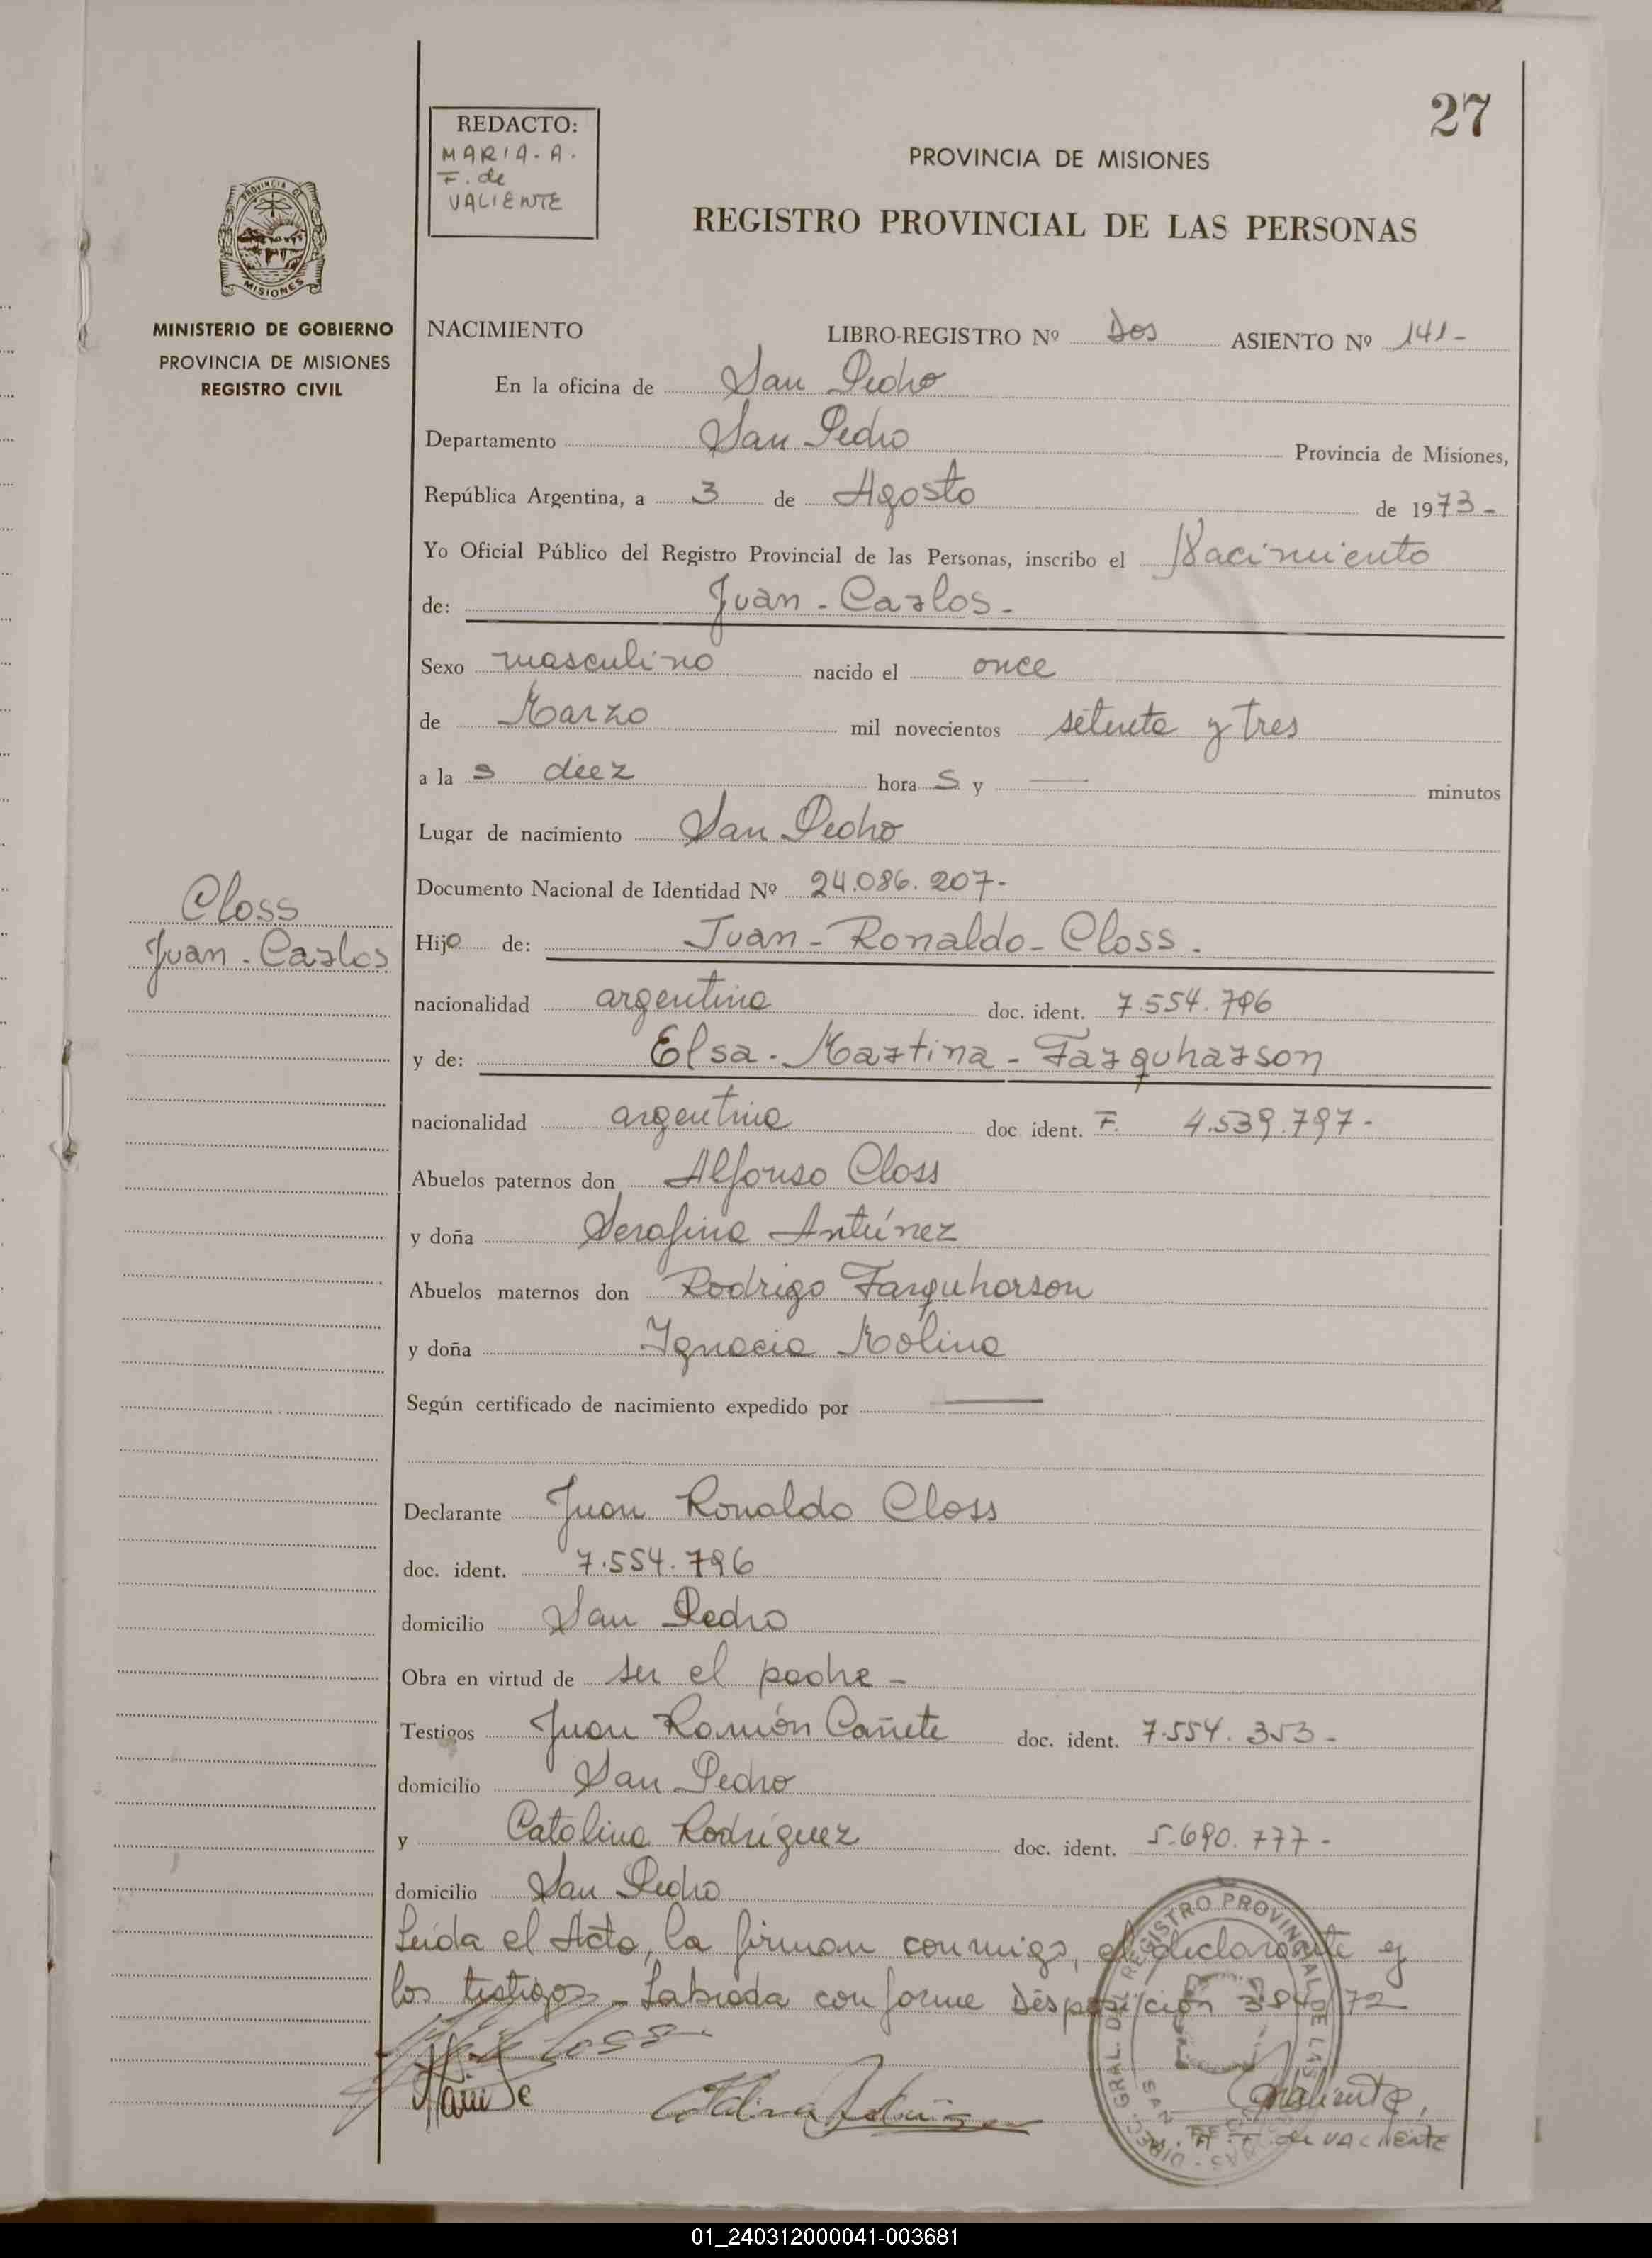 27
REDACTO:
MARIA. A.
F. de
VALIENTE
PROVINCIA DE MISIONES
REGISTRO PROVINCIAL DE LAS PERSONAS
PROVINCIA DE
MISIONES
MINISTERIO DE GOBIERNO
PROVINCIA DE MISIONES
REGISTRO CIVIL
NACIMIENTO LIBRO-REGISTRO Nº Dos ASIENTO Nº 141-
En la oficina de San Pedro
Departamento San Pedro Provincia de Misiones,
República Argentina, a 3 de Agosto de 1973-
Yo Oficial Público del Registro Provincial de las Personas, inscribo el Nacimiento
de: Juan - Carlos -
Sexo masculino nacido el once
de Marzo mil novecientos setenta y tres
a la s diez hora s y — minutos
Lugar de nacimiento San Pedro
Documento Nacional de Identidad Nº 24.086.207-
Closs
Juan - Carlos
Hijo de: Juan - Ronaldo - Closs -
nacionalidad argentina doc. ident. 7.554.796
y de: Elsa - Martina - Farquharson
nacionalidad argentina doc ident. F. 4.539.797-
Abuelos paternos don Alfonso Closs
y doña Serafina Antúnez
Abuelos maternos don Rodrigo Farquharson
y doña Ignacia Molina
Según certificado de nacimiento expedido por —
Declarante Juan Ronaldo Closs
doc. ident. 7.554.796
domicilio San Pedro
Obra en virtud de ser el padre -
Testigos Juan Ramón Cañete doc. ident. 7.554.353-
domicilio San Pedro
y Catalina Rodríguez doc. ident. 5.690.777-
domicilio San Pedro
Leída el Acta, la firman conmigo, el declarante y
los testigos - Labrada conforme Disposición 384/72
DIREC. GRAL. DEL REGISTRO PROVINCIAL DE LAS
SAN
F. de VALIENTE
01_240312000041-003681